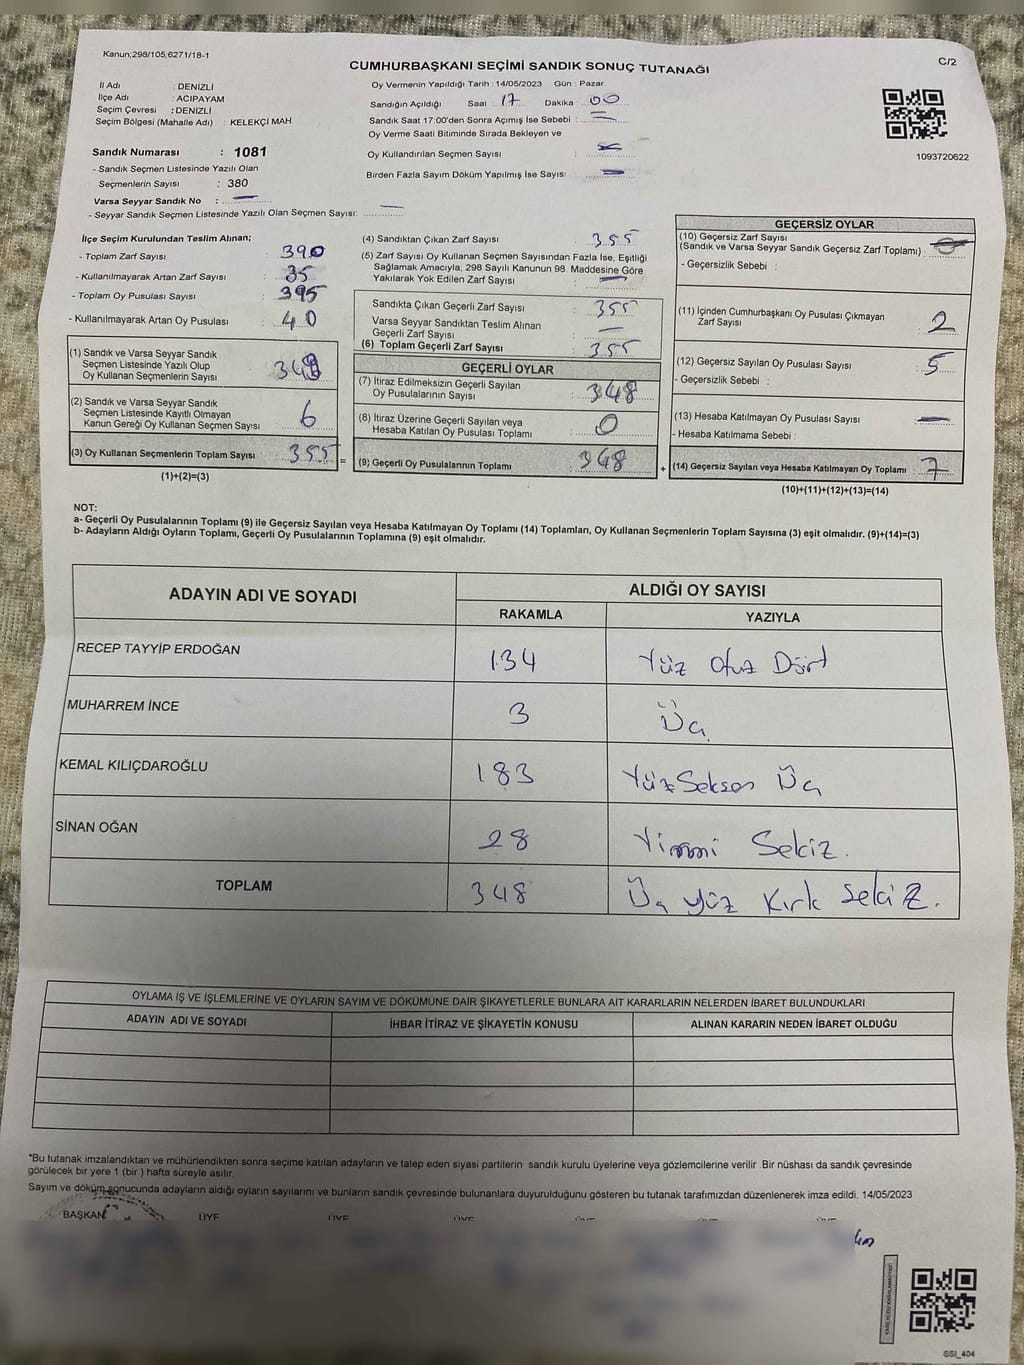 Kanun;298/105;6271/18-1
CUMHURBAŞKANI SEÇİMİ SANDIK SONUÇ TUTANAĞI
C/2
İl Adı : DENİZLİ
İlçe Adı : ACIPAYAM
Seçim Çevresi : DENİZLİ
Seçim Bölgesi (Mahalle Adı) : KELEKÇİ MAH.
Oy Vermenin Yapıldığı Tarih : 14/05/2023 Gün : Pazar
Sandığın Açıldığı Saat : 17 Dakika : 00
Sandık Saat 17:00'den Sonra Açımış İse Sebebi : —
Oy Verme Saati Bitiminde Sırada Bekleyen ve
Oy Kullandırılan Seçmen Sayısı :
Birden Fazla Sayım Döküm Yapılmış İse Sayısı : —
1093720622
Sandık Numarası : 1081
- Sandık Seçmen Listesinde Yazılı Olan
Seçmenlerin Sayısı : 380
Varsa Seyyar Sandık No : —
- Seyyar Sandık Seçmen Listesinde Yazılı Olan Seçmen Sayısı: —
İlçe Seçim Kurulundan Teslim Alınan;
- Toplam Zarf Sayısı : 390
- Kullanılmayarak Artan Zarf Sayısı : 35
- Toplam Oy Pusulası Sayısı : 395
- Kullanılmayarak Artan Oy Pusulası : 40
(1) Sandık ve Varsa Seyyar Sandık
Seçmen Listesinde Yazılı Olup
Oy Kullanan Seçmenlerin Sayısı : 349
(2) Sandık ve Varsa Seyyar Sandık
Seçmen Listesinde Kayıtlı Olmayan
Kanun Gereği Oy Kullanan Seçmen Sayısı : 6
(3) Oy Kullanan Seçmenlerin Toplam Sayısı : 355 =
(1)+(2)=(3)
(4) Sandıktan Çıkan Zarf Sayısı : 355
(5) Zarf Sayısı Oy Kullanan Seçmen Sayısından Fazla İse, Eşitliği
Sağlamak Amacıyla, 298 Sayılı Kanunun 98. Maddesine Göre
Yakılarak Yok Edilen Zarf Sayısı : —
Sandıkta Çıkan Geçerli Zarf Sayısı : 355
Varsa Seyyar Sandıktan Teslim Alınan
Geçerli Zarf Sayısı : —
(6) Toplam Geçerli Zarf Sayısı : 355
GEÇERLİ OYLAR
(7) İtiraz Edilmeksizin Geçerli Sayılan
Oy Pusulalarının Sayısı : 348
(8) İtiraz Üzerine Geçerli Sayılan veya
Hesaba Katılan Oy Pusulası Toplamı : 0
(9) Geçerli Oy Pusulalarının Toplamı : 348 +
GEÇERSİZ OYLAR
(10) Geçersiz Zarf Sayısı
(Sandık ve Varsa Seyyar Sandık Geçersiz Zarf Toplamı) :
- Geçersizlik Sebebi :
(11) İçinden Cumhurbaşkanı Oy Pusulası Çıkmayan
Zarf Sayısı : 2
(12) Geçersiz Sayılan Oy Pusulası Sayısı : 5
- Geçersizlik Sebebi :
(13) Hesaba Katılmayan Oy Pusulası Sayısı : —
- Hesaba Katılmama Sebebi :
(14) Geçersiz Sayılan veya Hesaba Katılmayan Oy Toplamı : 7
(10)+(11)+(12)+(13)=(14)
NOT:
a- Geçerli Oy Pusulalarının Toplamı (9) ile Geçersiz Sayılan veya Hesaba Katılmayan Oy Toplamı (14) Toplamları, Oy Kullanan Seçmenlerin Toplam Sayısına (3) eşit olmalıdır. (9)+(14)=(3)
b- Adayların Aldığı Oyların Toplamı, Geçerli Oy Pusulalarının Toplamına (9) eşit olmalıdır.
ADAYIN ADI VE SOYADI
ALDIĞI OY SAYISI
RAKAMLA YAZIYLA
RECEP TAYYİP ERDOĞAN 134 Yüz Otuz Dört
MUHARREM İNCE 3 Üç
KEMAL KILIÇDAROĞLU 183 Yüz Seksen Üç
SİNAN OĞAN 28 Yirmi Sekiz.
TOPLAM 348 Üç yüz Kırk Sekiz.
OYLAMA İŞ VE İŞLEMLERİNE VE OYLARIN SAYIM VE DÖKÜMÜNE DAİR ŞİKAYETLERLE BUNLARA AİT KARARLARIN NELERDEN İBARET BULUNDUKLARI
ADAYIN ADI VE SOYADI İHBAR İTİRAZ VE ŞİKAYETİN KONUSU ALINAN KARARIN NEDEN İBARET OLDUĞU
*Bu tutanak imzalandıktan ve mühürlendikten sonra seçime katılan adayların ve talep eden siyasi partilerin sandık kurulu üyelerine veya gözlemcilerine verilir .Bir nüshası da sandık çevresinde
görülecek bir yere 1 (bir ) hafta süreyle asılır.
Sayım ve döküm sonucunda adayların aldığı oyların sayılarını ve bunların sandık çevresinde bulunanlara duyurulduğunu gösteren bu tutanak tarafımızdan düzenlenerek imza edildi. 14/05/2023
BAŞKAN ÜYE ÜYE ÜYE ÜYE ÜYE ÜYE
SSI_404